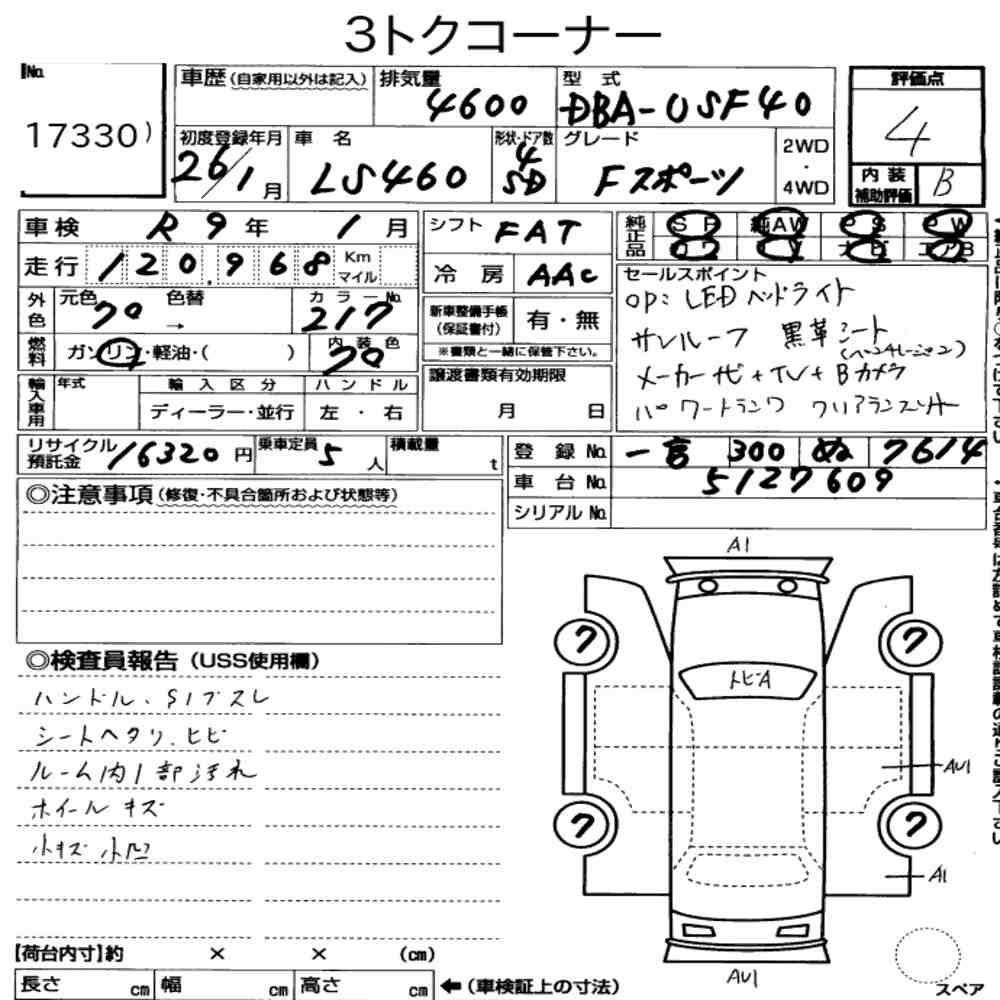 3トクコーナー
No. 17330)
車歴(自家用以外は記入)
排気量 4600
型式 DBA-USF40
評価点 4
初度登録年月 26/1月
車名 LS460
形状・ドア数 4 SD
グレード Fスポーツ
2WD・4WD
内装補助評価 B
車検 R9年1月
シフト FAT
純正品 SR 純AW PS PW
ナビ エアB
走行 120,968 Km マイル
冷房 AAC
セールスポイント
OP:LEDヘッドライト
サンルーフ 黒革シート
メーカーナビ+TV+Bカメラ
パワートランク クリアランスソナー
外色 元色 色替 → カラーNo. 217
新車整備手帳(保証書付) 有・無
※書類と一緒に保管下さい。
燃料 ガソリン・軽油・( ) 内装色
譲渡書類有効期限 月 日
輸入車用 年式 輸入区分 ハンドル
ディーラー・並行 左・右
リサイクル預託金 16320円
乗車定員 5人
積載量 t
登録No. 300 ぬ 7614
車台No. 5127609
シリアルNo.
◎注意事項(修復・不具合箇所および状態等)
◎検査員報告(USS使用欄)
ハンドル、SIブスレ
シートヘタリ、ヒビ
ルーム内1部汚れ
ホイールキズ
小キズ 小凹
A1
トビA
ワ ワ
AU1
ワ ワ
A1
AU1
スペア
【荷台内寸】約 × × (cm)
長さ cm 幅 cm 高さ cm ←(車検証上の寸法)